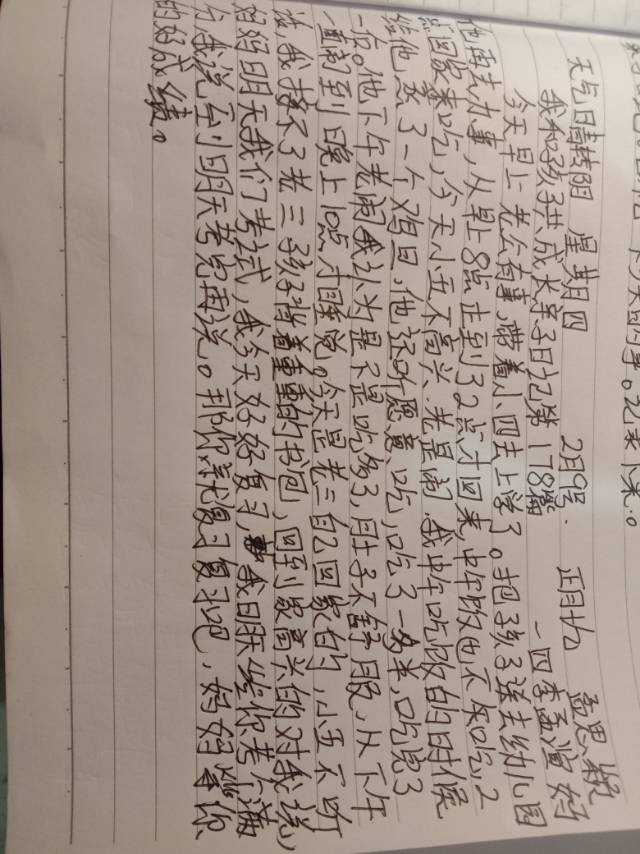 天气晴转阴 星期四 2月9号. 正月十九 孟思颖
我和孩子共成长亲子日记第178篇 一四李孟演妈
今天早上老公有事,带着小四去上学了。把孩子送去幼儿园
他再去办事,从早上8点走到32点才回来,中午饭也不及吃,2
点回家来吃,今天小五不高兴.老是闹.我中午吃饭的时候
给他煮了一个鸡旦,他还听愿意吃,吃了一多半,吃完了
一次。他下午老闹我认为是不是吃多了,肚子不舒服,从下午
一直闹到晚上10点才睡觉。今天是老三自己回家的,小五不听
话,我接不了老三孩子背着重重的书包,回到家高兴的对我说,
妈妈明天我们考试,我今天好好复习,我明天坐你考个满
分我说室到明天考完再说。那你就复习复习吧,妈妈等你
的好成绩。